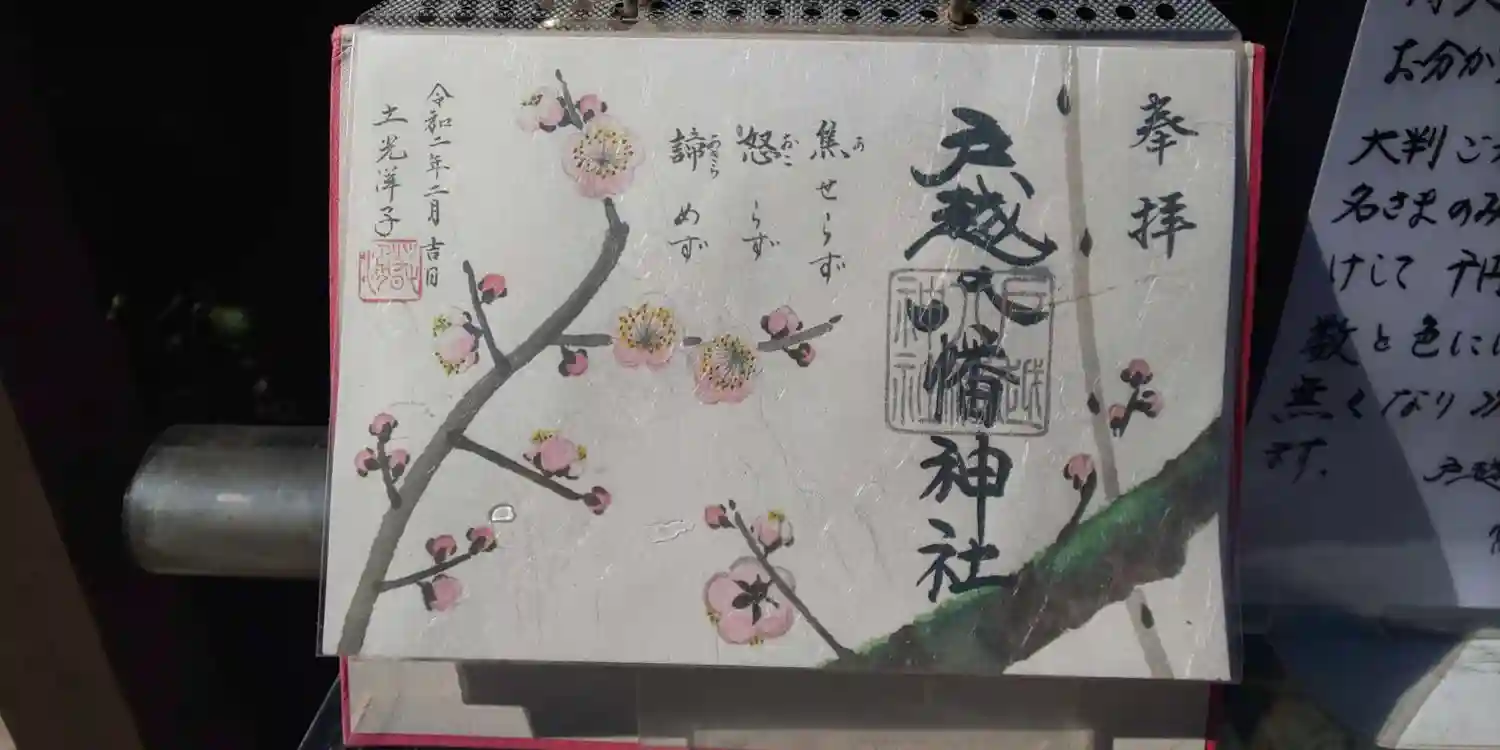 奉拝
戸越八幡神社
戸越
八幡
神社
焦せらず
あ
怒らず
おこ
諦めず
あきら
令和二年二月吉日
土光洋子
お分か
大判ご
名さまのみ
けして 千円
数と色に
無くなり次
ます。
戸越